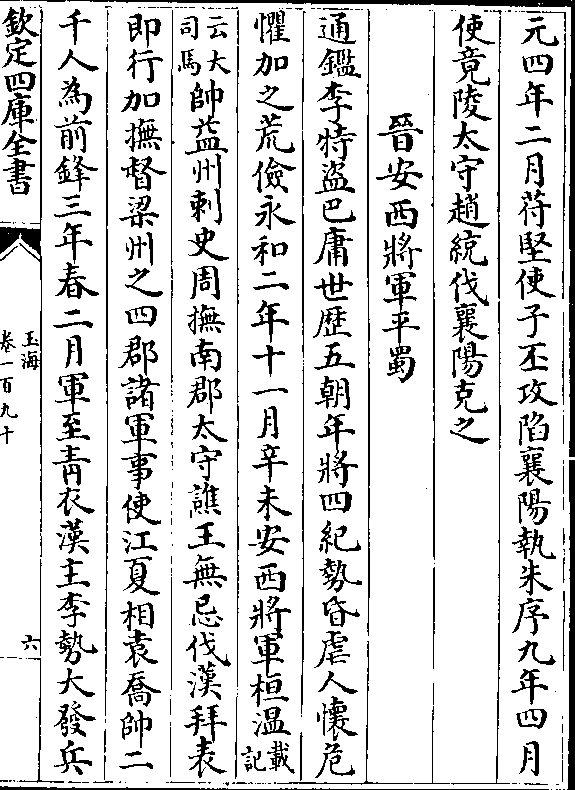 元四年二月苻堅使子丕攻陷襄陽執朱序九年四月
使竟陵太守趙統伐襄陽克之
晉安西將軍平蜀
通鑑李特盜巴庸世歴五朝年將四紀勢昏虐人懷危
懼加之荒儉永和二年十一月辛未安西將軍桓温載記
云大司馬帥益州刺史周撫南郡太守譙王無忌伐漢拜表
即行加撫督梁州之四郡諸軍事使江夏相袁喬帥二
千人為前鋒三年春二月軍至青衣漢主李勢大發兵
欽定四庫全書
玉海
卷一百九十
六